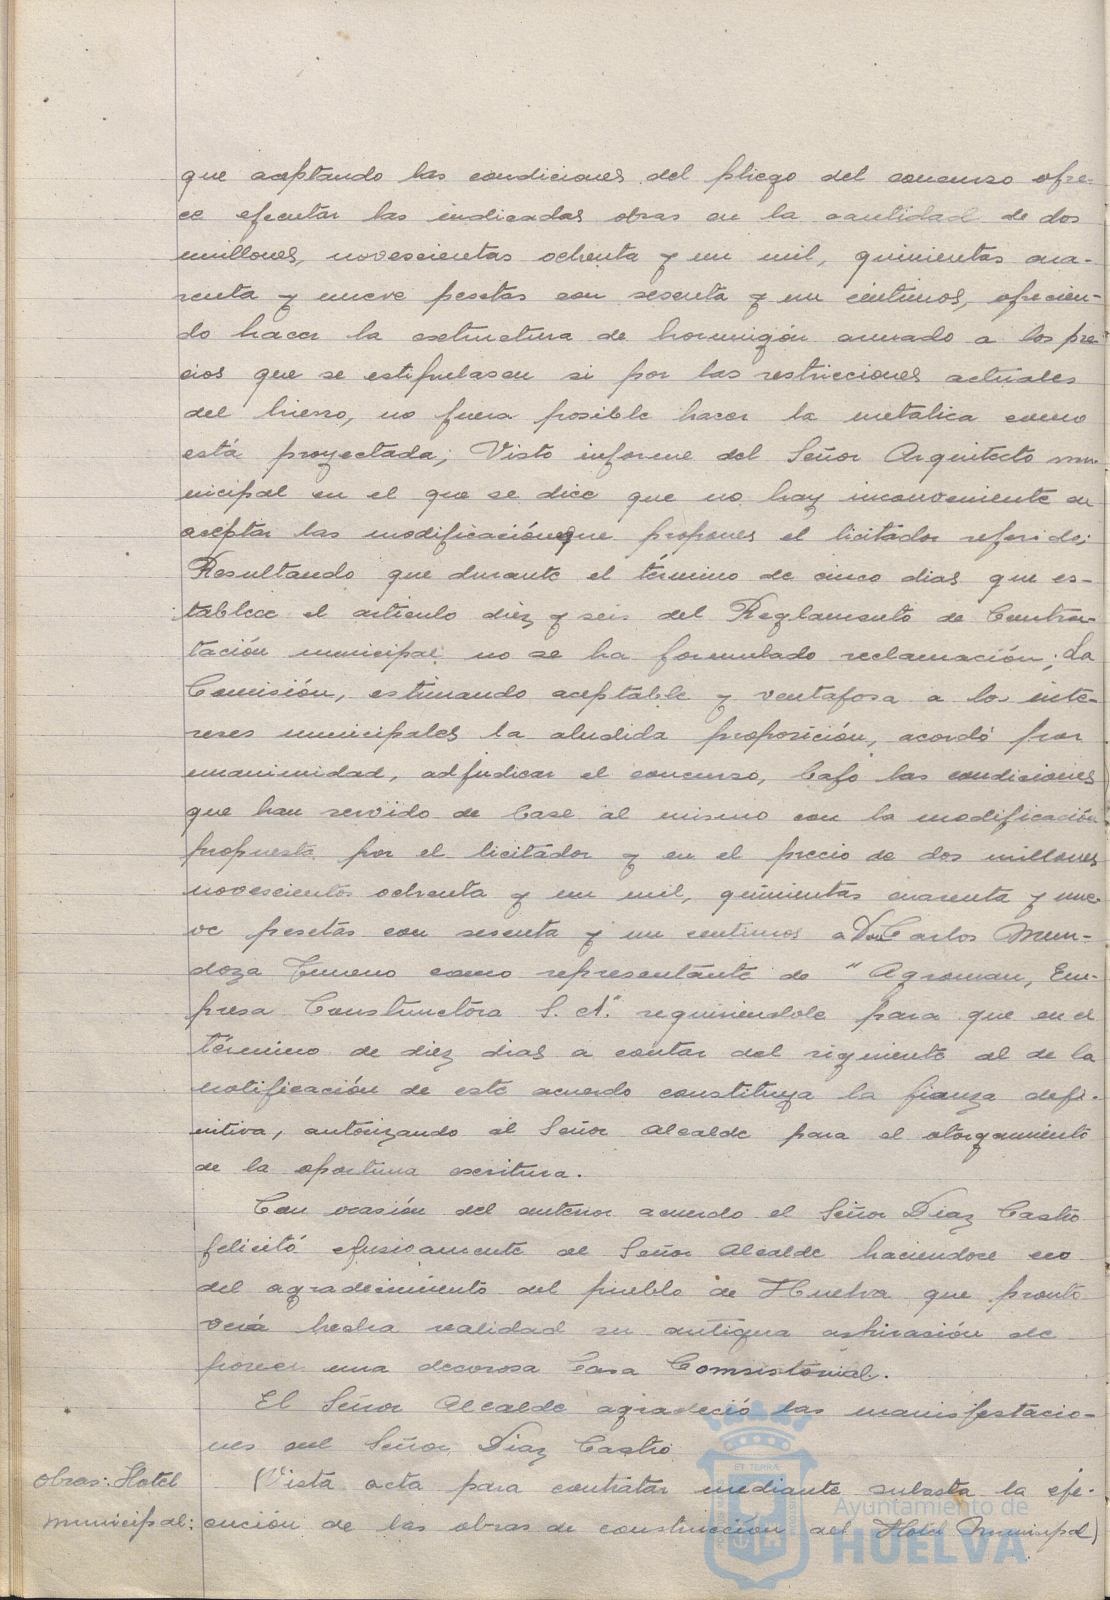 que aceptando las condiciones del pliego del concurso ofre-
ce ejecutar las indicadas obras en la cantidad de dos
millones, novescientas ochenta y un mil, quinientas cua-
renta y nueve pesetas con sesenta y un céntimos, ofrecien-
do hacer la estructura de hormigón armado a los pre-
cios que se estipulasen si por las restricciones actuales
del hierro, no fuera posible hacer la metálica como
está proyectada; Visto informe del Señor Arquitecto mu-
nicipal en el que se dice que no hay inconveniente en
aceptar las modificaciones que propones el licitador referido;
Resultando que durante el término de cinco dias que es-
tablece el artículo diez y seis del Reglamento de Contra-
tación municipal no se ha formulado reclamación; La
Comisión, estimando aceptable y ventajosa a los inte-
reses municipales la aludida proposición, acordó por
unanimidad, adjudicar el concurso, bajo las condiciones
que han servido de base al mismo con la modificación
propuesta por el licitador y en el precio de dos millones
novescientos ochenta y un mil, quinientas cuarenta y nue-
ve pesetas con sesenta y un centimos a Don Carlos Men-
doza como representante de "Agroman, Em-
presa Constructora S. A." requiriendole para que en el
término de diez dias a contar del siguiente al de la
notificación de este acuerdo constituya la fianza defi-
nitiva, autorizando al Señor Alcalde para el otorgamiento
de la oportuna escritura.
Con ocasión del anterior acuerdo el Señor Diaz Castro
felicitó efusivamente al Señor Alcalde haciendose eco
del agradecimiento del pueblo de Huelva que pronto
verá hecha realidad su antigua aspiración de
poseer una decorosa Casa Consistorial.
El Señor Alcalde agradeció las manifestacio-
nes del Señor Diaz Castro
Obras: Hotel municipal:
(Vista acta para contratar mediante subasta la eje-
cución de las obras de construcción del Hotel Municipal)
Ayuntamiento de
HUELVA